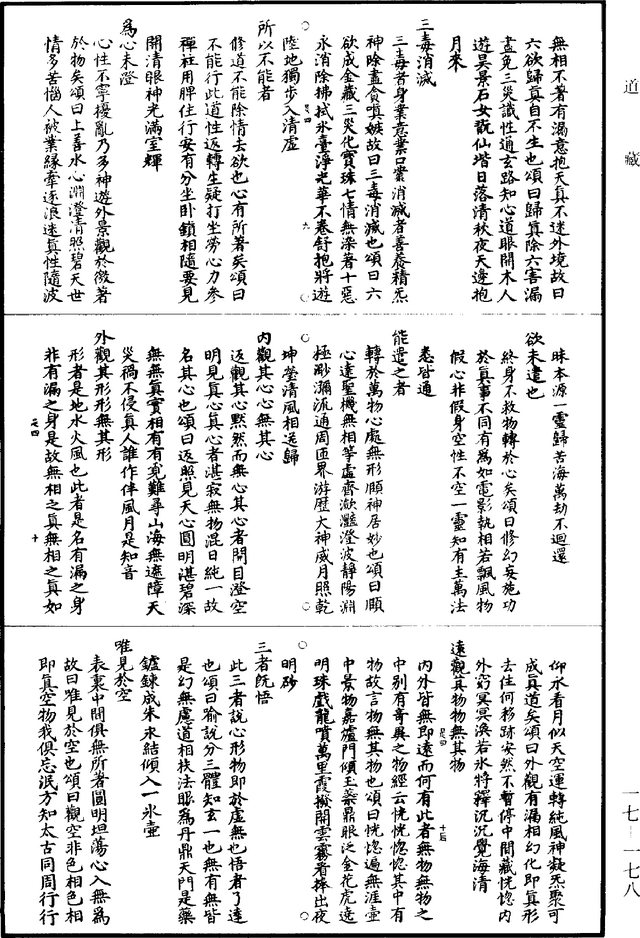 道藏
無相不著有漏意抱天真不迷外境故曰
六欲歸真自不生也頌曰歸真除六害漏
盡免三災識性通玄路知心道眼開木人
遊昊景石女翫仙堦日落清秋夜天邊抱
月來
三毒消滅
三毒者身業意業口業消滅者善養精炁
神除盡貪嗔嫉故曰三毒消滅也頌曰六
欲成金藏三災化寶珠七情無染著十惡
永消除拂拭氷臺淨光華不卷舒抱將遊
陸地獨步入清虛
所以不能者
修道不能除情去欲也心有所著矣頌曰
不能行此道性返轉生疑打坐勞心力參
禪社用脾住行安有分坐卧鎖相隨要見
開清眼神光滿室輝
為心未澄
心性不寧擾亂乃多神遊外景觀於微者
於物矣頌曰上善水心淵澄清照碧天世
情多苦惱人被業緣牽逐浪迷真性隨波
昧本源一靈歸苦海萬劫不迴還
欲未遣也
終身不救物轉於心矣頌曰修幻妄施功
於真事不同有為如電影執相若飄風物
假心非假身空性不空一靈知有主萬法
悉皆通
能遣之者
轉於萬物心處無形頤神居妙也頌曰頤
心達聖機無相等虛齊瀲灩澄波靜陽淵
極渺瀰流通周匝界游歷大神威月照乾
坤瑩清風相送歸
內觀其心心無其心
返觀其心黙然而無心其心者開目澄空
明見真心真心者湛寂無物混日純一故
名其心也頌曰返照見天心圓明湛碧深
無無真實相有有竟難尋山海無遮障天
災禍不侵真人誰作伴風月是知音
外觀其形形無其形
形者是地水火風也此者是名有漏之身
非有漏之身是故無相之真無相之真如
仰水看月似天空運轉純風神凝炁聚可
成真道矣頌曰外觀有漏相幻化即真形
去住何移跡安然不暫停中間藏恍惚內
外窮冥冥渙若氷將釋沉沉覺海清
遠觀其物物無其物
內外皆無即遠而何有此者無物無物之
中別有奇異之物經云恍恍惚惚其中有
物故言物無其物也頌曰恍惚遍無涯壷
中景物嘉爐門傾玉蘂鼎眼泛金花虎遶
明珠戲龍噴萬里霞撥開雲霧看捧出夜
明砂
三者旣悟
此三者說心形物即於虛無也悟者了達
也頌曰喻說分三體知玄一也無有無皆
是幻無慮道相扶法眼為丹鼎天門是藥
鑪鍊成朱汞結傾入一氷壷
唯見於空
表裏中間俱無所著圓明坦蕩心入無為
故曰唯見於空也頌曰觀空非色相色相
即真空物我俱忘泯方知太古同周行行
一七—一七八